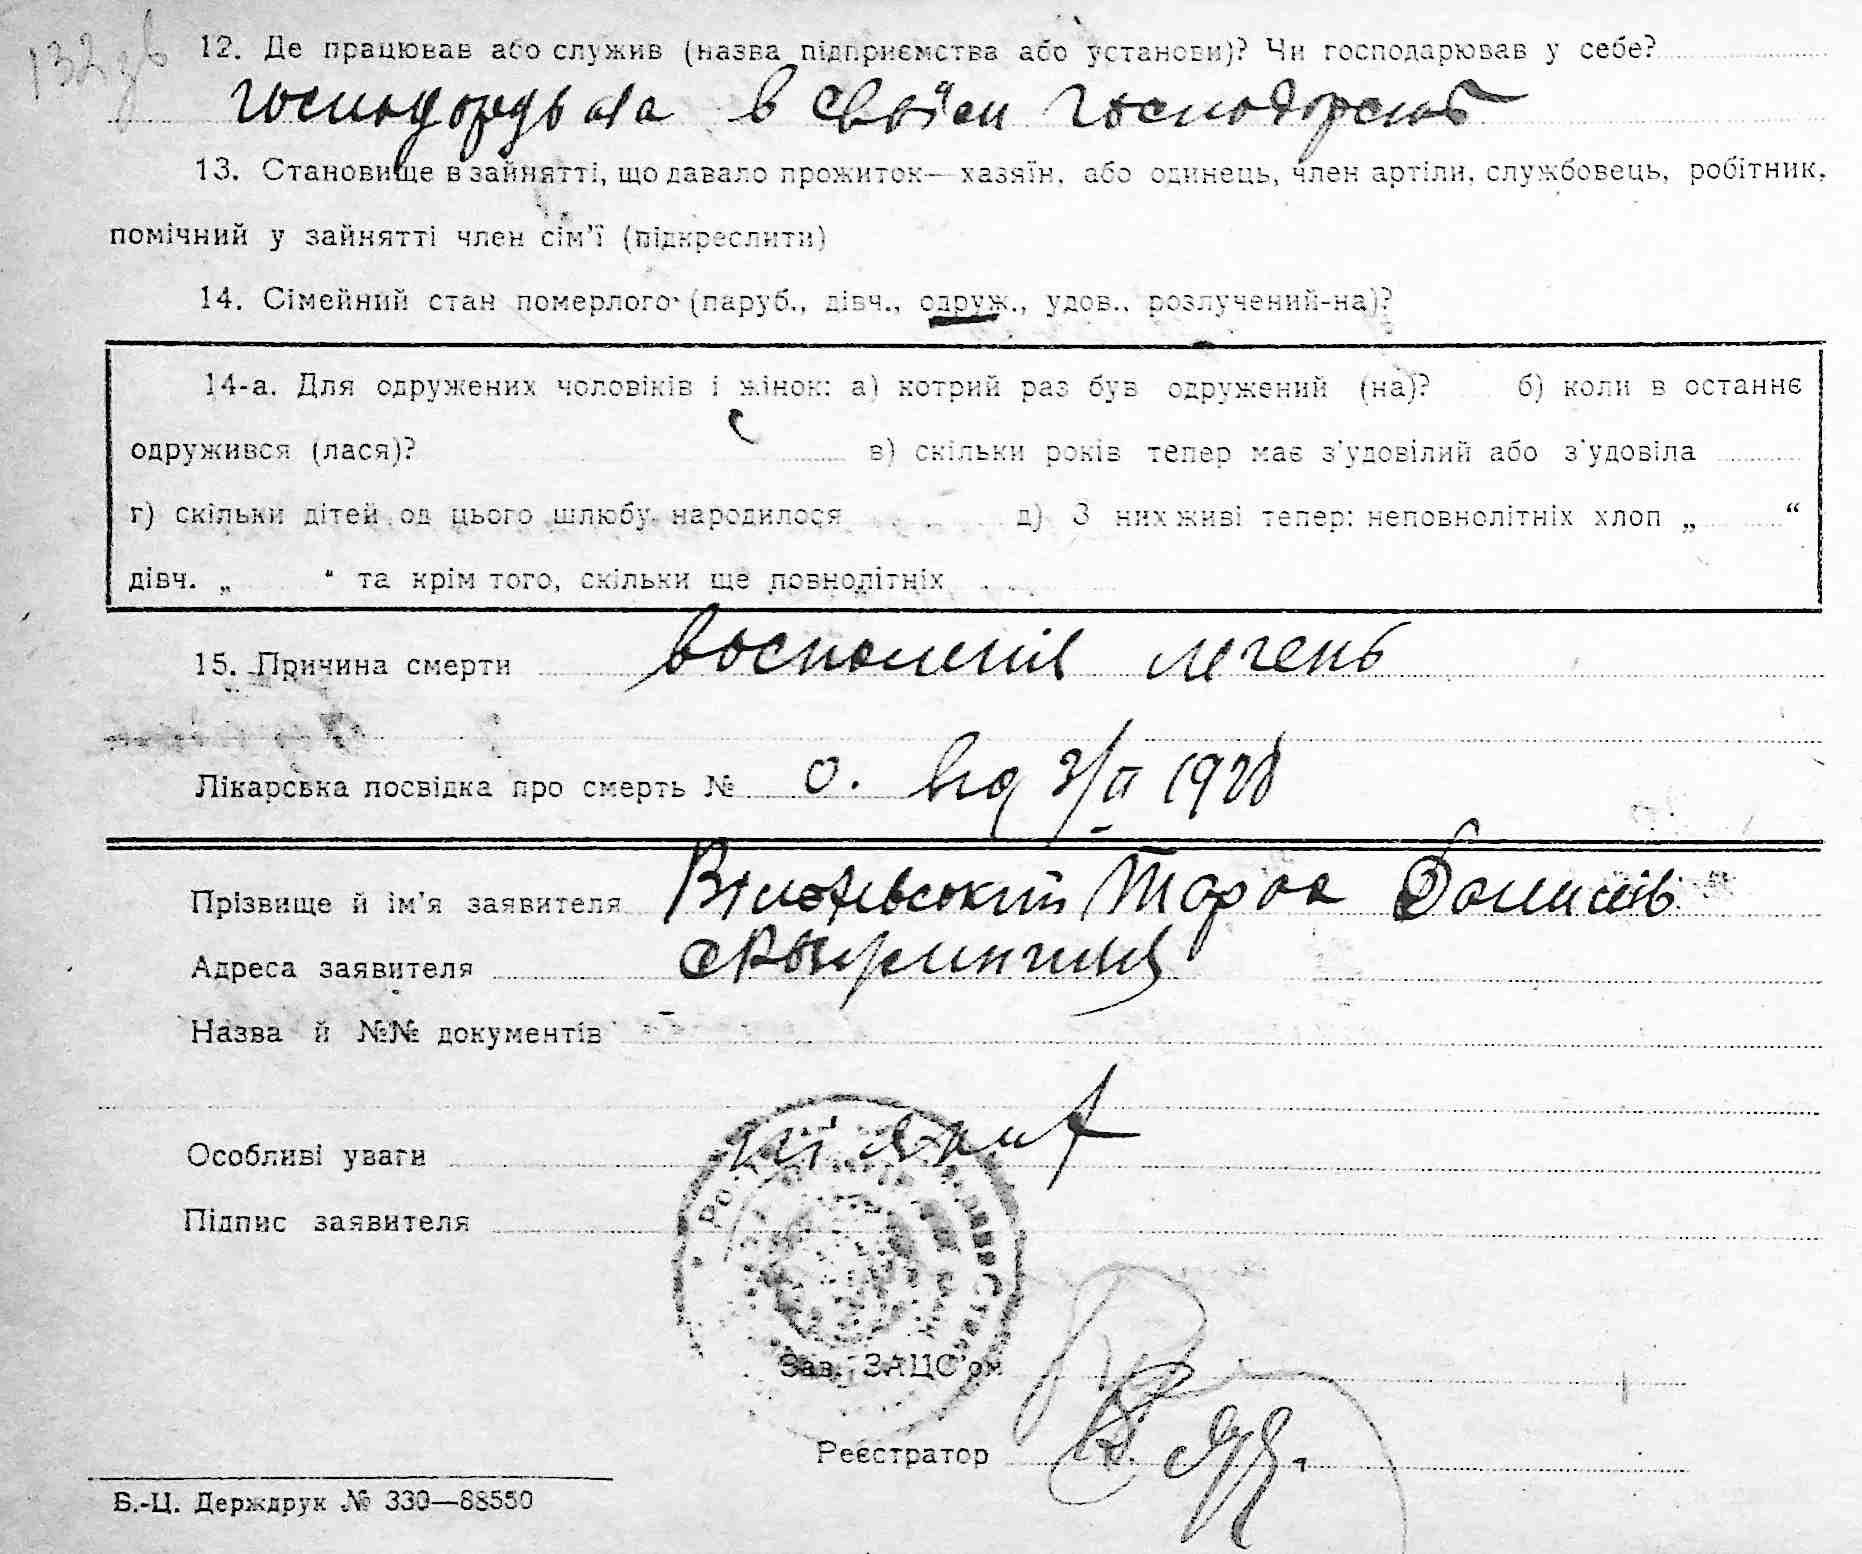 12. Де працював або служив (назва підприємства або установи)? Чи господарював у себе?
в своїм
13. Становище в зайнятті, що давало прожиток—хазяїн, або одинець, член артіли, службовець, робітник,
помічний у зайнятті член сім’ї (підкреслити)
14. Сімейний стан померлого (паруб., дівч., одруж., удов., розлучений-на)?
14-а. Для одружених чоловіків і жінок: а) котрий раз був одружений (на)? б) коли в останнє
одружився (лася)? в) скільки років тепер має з’удовілий або з’удовіла
г) скільки дітей од цього шлюбу народилося д) З них живі тепер: неповнолітніх хлоп „ “
дівч. „ “ та крім того, скільки ще повнолітніх
15. Причина смерти воспаленія легень
Лікарська посвідка про смерть № 0. від
Прізвище й ім’я заявителя Тарас
Адреса заявителя
Назва й №№ документів
Особливі уваги
Підпис заявителя
Зав. ЗАЦС’ом
Реєстратор
Б.-Ц. Держдрук № 330—88550